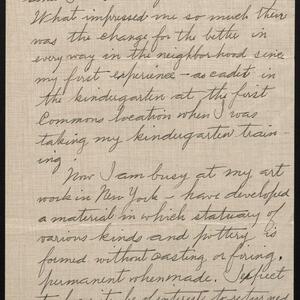 What impressed me so much then
was the change for the better in
every way in the neighborhood since
my first experience - as cadet in
the kindergarten at the first
Commons location when I was
taking my kindergarten train-
ing.
Now I am busy at my art
work in New York - have developed
a material in which statuary of
various kinds and pottery is
formed without casting, or firing,
permanent when made. I expect
to have it